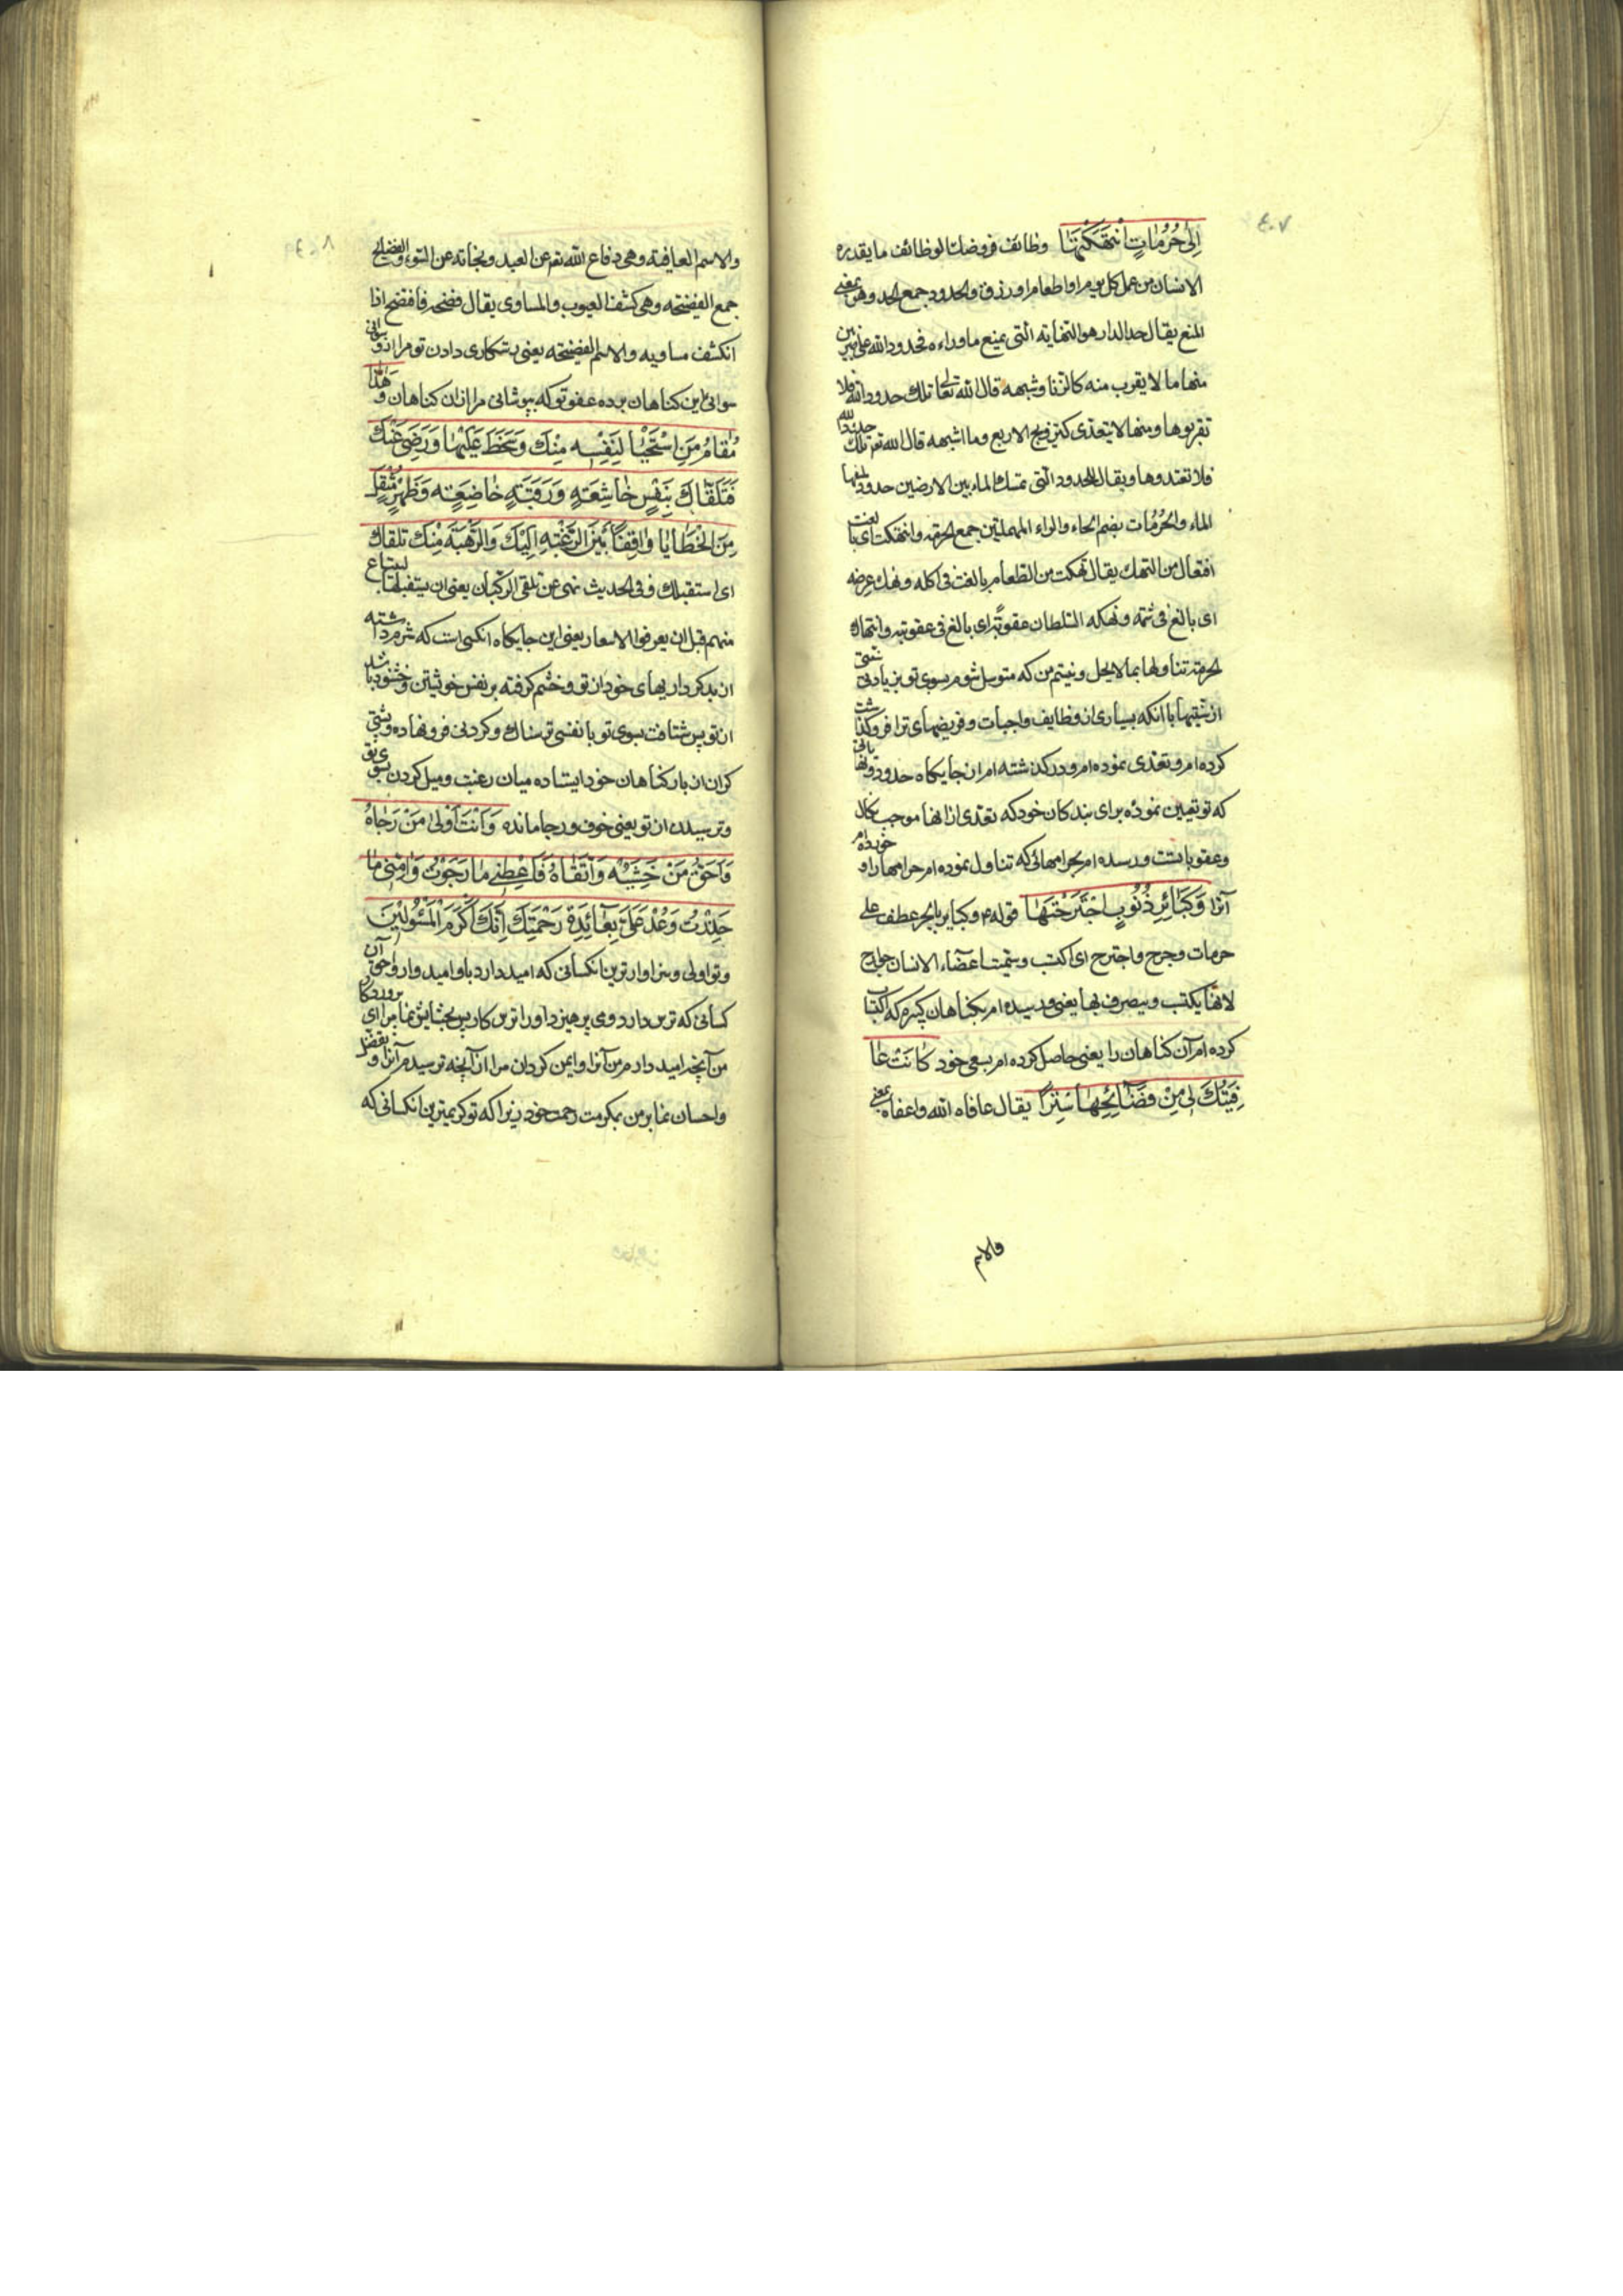 ٤٠٧
إِلىٰ حُرُمٰاتٍ انْتَهَكْتُهٰا وظائف فروضك الوظائف ما يقدره
الانسان من عمل كل يوم او اطعام او رزق والحدود جمع الحد وهو بمعنى
المنع يقال حد الدار هو النهاية التى يمنع ماوراءه فحدود الله على ضربين
منها ما لا يقرب منه كالزنا وشبهه قال الله تعالى تلك حدود الله فلا
تقربوها ومنها لا يتعدى كتزويج الاربع وما اشبهه قال الله تع تلك حدود الله
فلا تعتدوها ويقال للحدود التى تمسك الماء بين الارضين حدود لمنعها
الماء والحُرُمٰات بضم الحاء والراء المهملتين جمع الحرمة وانتهكت اى بالغت
افتعال من النهك يقال نهكت من الطعام بالغت فى اكله ونهك عرضه
اى بالغ فى شتمه ونهكه السلطان عقوبةً اى بالغ فى عقوبته وانتهاك
الحرمة تناولها بما لا يحل ونيستم من كه متوسل شوم بسوى تو بزيادتى سنتى
از سنتها با انكه بسيارى از وظايف واجبات وفريضهاى ترا فروكذاشت
كرده ام وتعدى نموده ام ودركذشته ام از جايكاه حدود تو
كه تو تعيين نمودۀ براى بندكان خود كه تعدى از انها موجب نكال
وعقوباتست ورسيده ام بحرامهائى كه تناول نموده ام حرامها را وخورده ام
آنرا وَكَبٰائِرِ ذُنُوبٍ اجْتَرَحْتُهٰا قوله ع وكباير بالجر عطف على
حرمات وجرح واجترح اى اكتسب وسميت اعضاء الانسان جوارح
لانها يكتسب ويتصرف بها يعنى ورسيده ام بكناهان كبيره كه اكتساب
كرده ام آن كناهان را يعنى حاصل كرده ام بسعى خود كٰانَتْ عٰا
فِيَتُكَ لِى مِنْ فَضٰائِحِهٰا سِتْراً يقال عافاه الله واعفاه بمعنى
والاسم
٤٠٨
والاسم العافية وهى دفاع الله تع عن العبد ونجاته عن السوء والفضايح
جمع الفضيحة وهى كشف العيوب والمساوى يقال فضحه فافتضح اذا
انكشف مساويه والاسم الفضيحة يعنى رستكارى دادن تو مرا از رسوائى
سوائى اين كناهان پرده عفو تو كه بپوشانى مرا از ان كناهان وَهٰذٰا
مَقٰامُ مَنِ اسْتَحْيٰا لِنَفْسِهِ مِنْكَ وَسَخِطَ عَلَيْهٰا وَرَضِىَ عَنْكَ
فَتَلَقّٰاكَ بِنَفْسٍ خٰاشِعَةٍ وَرَقَبَةٍ خٰاضِعَةٍ وَظَهْرٍ مُثْقَلٍ
مِنَ الْخَطٰايٰا وٰاقِفاً بَيْنَ الرَّغْبَةِ اِلَيْكَ وَالرَّهْبَةِ مِنْكَ تلقاك
اى استقبلك وفى الحديث نهى عن تلقى الركبان يعنى ان يستقبلها ليبتاع
منهم قبل ان يعرفوا الاسعار يعنى اين جايكاه انكسى است كه شرم داشته
از بدكرداريهاى خود از تو وخشم كرفته بر نفس خويشتن وخشنود باشد
از تو پس شتافت بسوى تو با نفسى ترسناك وكردنى فرونهاده وپشتى
كران از بار كناهان خود ايستاده ميان رغبت وميل كردن بسوى تو
وترسيدن از تو يعنى خوف ورجا مانده وَاَنْتَ اَوْلىٰ مَنْ رَجٰاهُ
وَاَحَقُّ مَنْ خَشِيَهُ وَاتَّقٰاهُ فَاَعْطِنِى مٰا رَجَوْتُ وَاٰمِنِّى مٰا
حَذِرْتُ وَعُدْ عَلَىَّ بِعٰائِدَةِ رَحْمَتِكَ اِنَّكَ اَكْرَمُ الْمَسْئُولِينَ
وتو اولى وسزاوارترين انكسانى كه اميد دارد باو اميدوار واحق آن
كسانى كه ترس دارد وى پرهيز داورا ترس كار پس بخشايش نما مرا اى پروردكار
من آنچه اميد دارم من آنرا وايمن كردان مرا از آنچه ترسيدم آنرا وتفضل
واحسان نما بر من بمكرمت رحمت خود زيرا كه تو كريمترين انكسانى كه